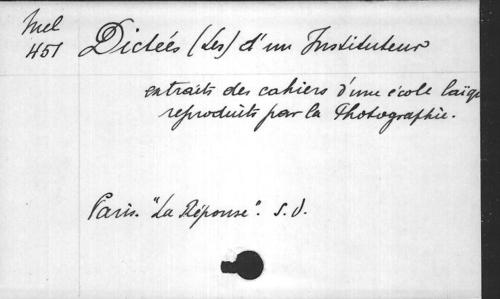 Mel
451
Dictées (Les) d'un Instituteur
extraits des cahiers d'une école laïqu
reproduits par la Photographie.
Paris. "La Réponse". s.d.